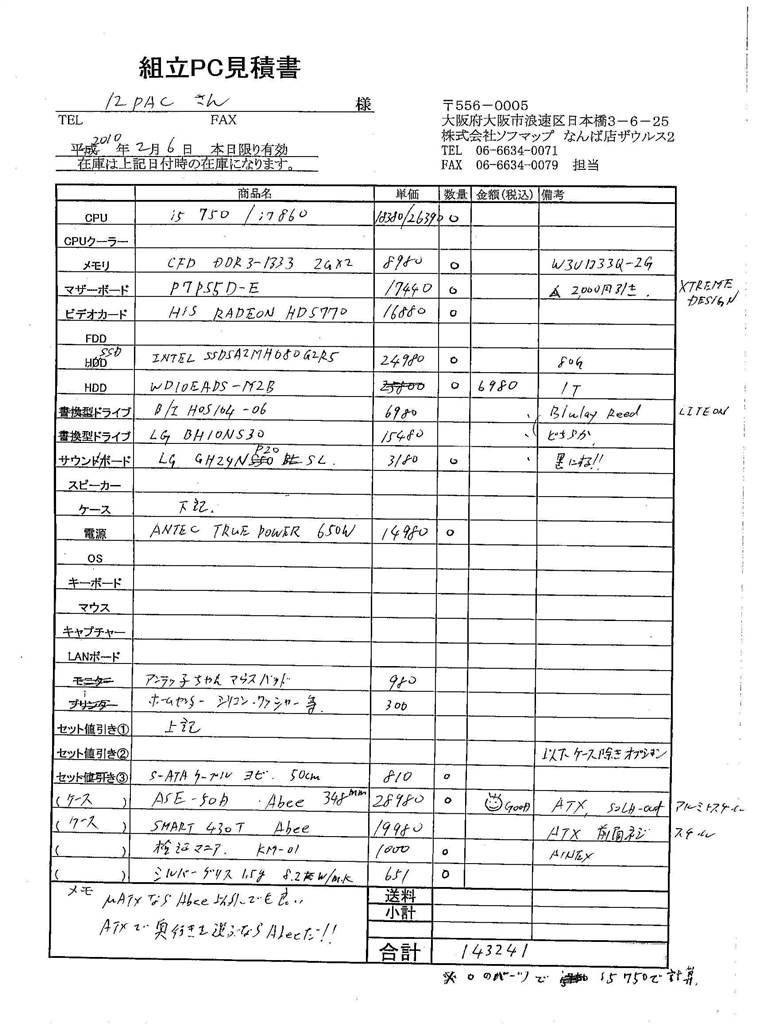 組立PC見積書
12PAC さん 様
TEL FAX
平成 2010 年 2月 6日 本日限り有効
在庫は上記日付時の在庫になります。
〒556-0005
大阪府大阪市浪速区日本橋3-6-25
株式会社ソフマップ なんば店ザウルス2
TEL 06-6634-0071
FAX 06-6634-0079 担当
商品名 単価 数量 金額(税込) 備考
CPU i5 750 / i7860 18380/26390 o
CPUクーラー
メモリ CFD DDR3-1333 2G×2 8980 o W3U1333Q-2G
マザーボード P7P55D-E 17440 o ▲ 2,000円引き. XTREME DESIGN
ビデオカード HIS RADEON HD5770 16880 o
FDD
HDD SSD INTEL SSDSA2MH080G2R5 24980 o 80G
HDD WD10EADS-M2B 25800 o 6980 1T
書換型ドライブ B/I HOS104-06 6980 Blulay Reed LITEON
書換型ドライブ LG BH10NS30 15480 どちらか.
サウンドボード LG GH24N P20 SL. 3180 o 黒にする!!
スピーカー
ケース 下記.
電源 ANTEC TRUE POWER 650W 14980 o
OS
キーボード
マウス
キャプチャー
LANボード
モニター アンラッ子ちゃん マウスパッド 980
プリンター ホームセンター シリコン・ワッシャー 等. 300
セット値引き① 上記
セット値引き② 以下ケース除きオプション
セット値引き③ S-ATA ケーブル ヨビ. 50cm 810 o
(ケース) ASE-50B ・Abee 348mm 28980 o Good ATX, sold-out アルミトスチール
(ケース) SMART 430T Abee 19980 ATX 前面ネジ スチール
( ) 検証マニア. KM-01 1000 o AINEX
( ) シルバーグリス 1.5g 8.2 W/m.k 651 o
メモ μATXなら Abee 以外でも良い.
ATXで奥行きを選ぶなら Abeeだ!!
送料
小計
合計 143241
※ oのパーツで i5 750で計算.